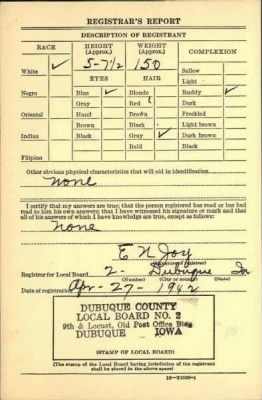 REGISTRAR'S REPORT
DESCRIPTION OF REGISTRANT
RACE HEIGHT (Approx.) WEIGHT (Approx.) COMPLEXION
White ✓ 5-7½ 150 Sallow
EYES HAIR Light
Negro Blue ✓ Blonde Ruddy ✓
Gray Red Dark
Oriental Hazel Brown Freckled
Brown Black Light brown
Indian Black Gray ✓ Dark brown
Bald Black
Filipino
Other obvious physical characteristics that will aid in identification
None
I certify that my answers are true; that the person registered has read or has had
read to him his own answers; that I have witnessed his signature or mark and that
all of his answers of which I have knowledge are true, except as follows:
None
E N Joy
(Signature of registrar)
Registrar for Local Board 2 - Dubuque Ia
(Number) (City or county) (State)
Date of registration Apr - 27 - 1942
DUBUQUE COUNTY
LOCAL BOARD NO. 2
9th & Locust, Old Post Office Bldg
DUBUQUE IOWA
(STAMP OF LOCAL BOARD)
(The stamp of the Local Board having jurisdiction of the registrant
shall be placed in the above space)